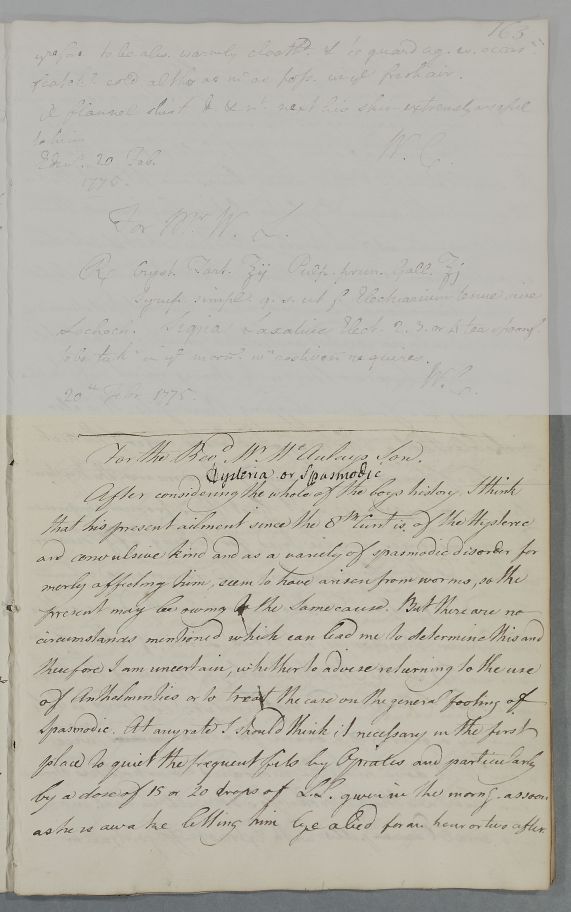 163
to be alw. warmly cloath'd & to guard ag.
cold altho as
A flannel shirt next his skin extremely useful
to him
Edin. 20 Feb. W. C.
1775.
For Mr. W. L.
Rx Cryst. Tart. ʒij Pulp. prun. Gall. ℥j
Syrup. simpl. q. s. ut f. Electuarium tenue
Signa Laxative Elect. 2. 3. or 4 tea spoonf.
in ye morn. wn costiveness requires.
W. C.
20th Febr. 1775.
For the Revd. Mr. McAulays Son.
Hysteria or Spasmodic
After considering the whole of the boys history, I think
that his present ailment since the 8th Curt is, of the Hysteric
and convulsive kind and as a variety of spasmodic disorder for
merly affecting him, seem to have arisen from worms, so the
present may be owing to the same cause. But there are no
circumstances mentioned which can lead me to determine this and
therefore I am uncertain, whether to advise returning to the use
of Anthelmintics or to treat the case on the general footing of
spasmodic. At any rate I should think it necessary in the first
place to quiet the frequent fits by Opiates and particularly
by a dose of 15 or 20 drops of L.L. given in the morng. as soon
as he is awake letting him lye abed for an hour or two after.